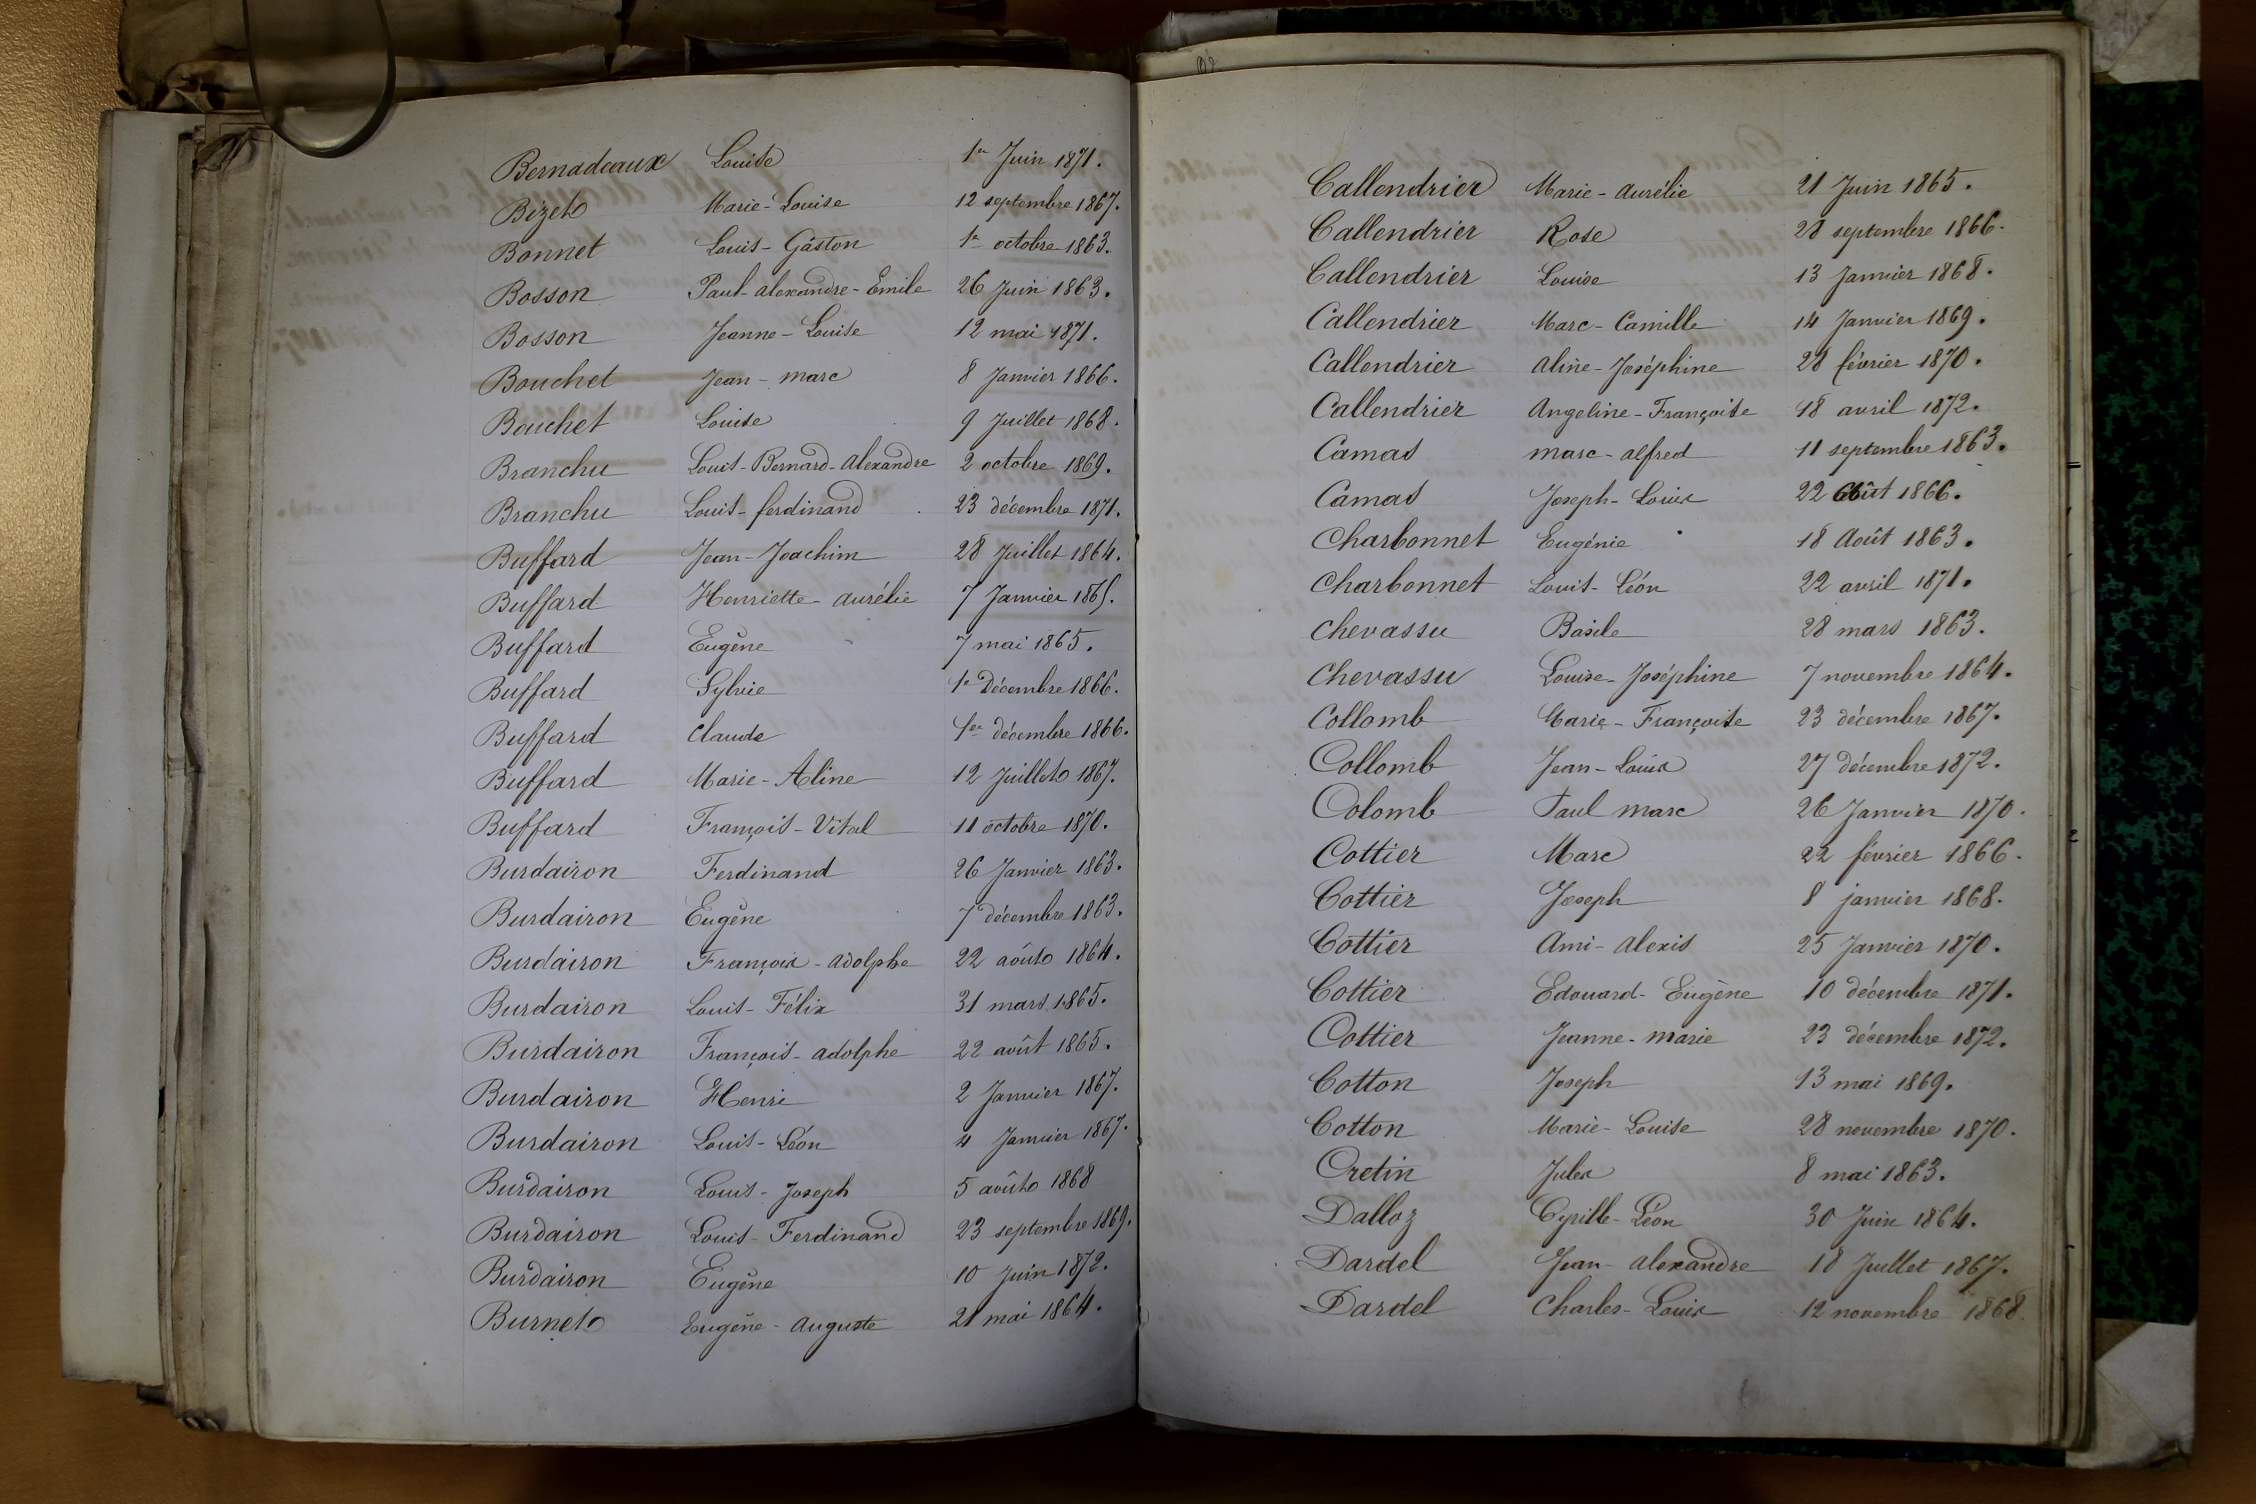 Bernadeaux Louise 1er Juin 1871.
Bizet Marie-Louise 12 septembre 1867.
Bonnet Louis-Gaston 1er octobre 1863.
Bosson Paul-alexandre-Emile 26 Juin 1863.
Bosson Jeanne-Louise 12 mai 1871.
Bouchet Jean-marc 8 Janvier 1866.
Bouchet Louise 9 Juillet 1868.
Branchu Louis-Bernard-alexandre 2 octobre 1869.
Branchu Louis-ferdinand 23 décembre 1871.
Buffard Jean-Joachim 28 Juillet 1864.
Buffard Henriette-aurélie 7 Janvier 1865.
Buffard Eugène 7 mai 1865.
Buffard Sylvie 1er Décembre 1866.
Buffard Claude 1er décembre 1866.
Buffard Marie-Aline 12 Juillet 1867.
Buffard François-Vital 11 octobre 1870.
Burdairon Ferdinand 26 Janvier 1863.
Burdairon Eugène 7 décembre 1863.
Burdairon François-adolphe 22 août 1864.
Burdairon Louis-Félix 31 mars 1865.
Burdairon François-adolphe 22 août 1865.
Burdairon Henri 2 Janvier 1867.
Burdairon Louis-Léon 4 Janvier 1867.
Burdairon Louis-Joseph 5 août 1868
Burdairon Louis-Ferdinand 23 septembre 1869.
Burdairon Eugène 10 Juin 1872.
Burnet Eugène-auguste 21 mai 1864.
Callendrier Marie-aurélie 21 Juin 1865.
Callendrier Rose 28 septembre 1866.
Callendrier Louise 13 Janvier 1868.
Callendrier Marc-Camille 14 Janvier 1869.
Callendrier aline-Joséphine 28 février 1870.
Callendrier Angeline-Françoise 18 avril 1872.
Camas marc-alfred 11 septembre 1863.
Camas Joseph-Louis 22 Août 1866.
Charbonnet Eugénie 18 Août 1863.
Charbonnet Louis-Léon 22 avril 1871.
Chevassu Basile 28 mars 1863.
Chevassu Louise-Joséphine 7 novembre 1864.
Collomb Marie-Françoise 23 décembre 1867.
Collomb Jean-Louis 27 décembre 1872.
Colomb Paul marc 26 Janvier 1870.
Cottier Marc 22 février 1866.
Cottier Joseph 8 janvier 1868.
Cottier Ami-alexis 25 Janvier 1870.
Cottier Edouard-Eugène 10 décembre 1871.
Cottier Jeanne-marie 23 décembre 1872.
Cotton Joseph 13 mai 1869.
Cotton Marie-Louise 28 novembre 1870.
Cretin Jules 8 mai 1863.
Dalloz Cyrille-Léon 30 Juin 1864.
Dardel Jean-alexandre 18 Juillet 1867.
Dardel Charles-Louis 12 novembre 1868.